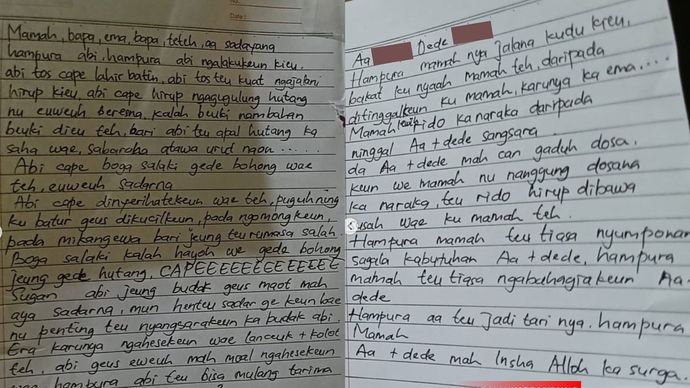 No.
Date:
Mamah, bapa, ema, bapa, teteh, aa sadayana
hampura abi, hampura abi ngalakukeun kieu,
abi tos cape lahir batin, abi tos teu kuat ngajalani
hirup kieu, abi cape hirup ngagugulung hutang
nu euweuh berema, kalah beuki nambahan
beuki dieu teh, bari abi teu apal hutang ka
saha wae, sabaraha atawa urut naon ......
Abi cape boga salaki gede bohong wae
teh, euweuh sadarna
Abi cape dinyerihatekeun wae teh, puguh ning
ku batur geus dikucilkeun, pada ngomongkeun,
pada mikangewa bari jeung teu rumasa salah.
Boga salaki kalah hayoh we gede bohong
jeung gede hutang, CAPEEEEEEGEEEEEE
Sugan abi jeung budak geus maot mah
aya sadarna, mun henteu sadar ge keun bae
nu penting teu nyangsarakeun ka budak abi,
Era karunya ngahesekeun wae lanceuk + kolot
teh, abi geus euweuh mah moal ngahesekeun
hampura abi teu bisa mulang tarima
Aa Dede
Hampura mamah nya jalana kudu kieu,
bakat ku nyaah Mamah teh, daripada
ditinggalkeun ku mamah, karunya ka ema....
Mamah leuwih rido ka naraka daripada
ninggal Aa + dede sangsara.
da Aa + dede mah can gaduh dosa.
keun we mamah nu nanggung dosana
ka naraka, teu rido hirup dibawa
susah wae ku mamah teh.
Hampura mamah teu tiasa nyumponan
sagala kabutuhan Aa + dede, hampura
mamah teu tiasa ngabahagiakeun Aa +
dede
Hampura aa teu jadi tari nya, hampura
Mamah
Aa + dede mah Insha Alloh ka surga.